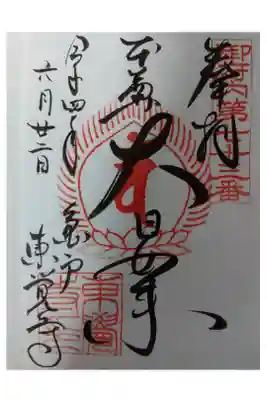 御府内第七十三番
奉拝
本尊
大日如来
亀戸
東覚寺
令和四年
六月廿二日